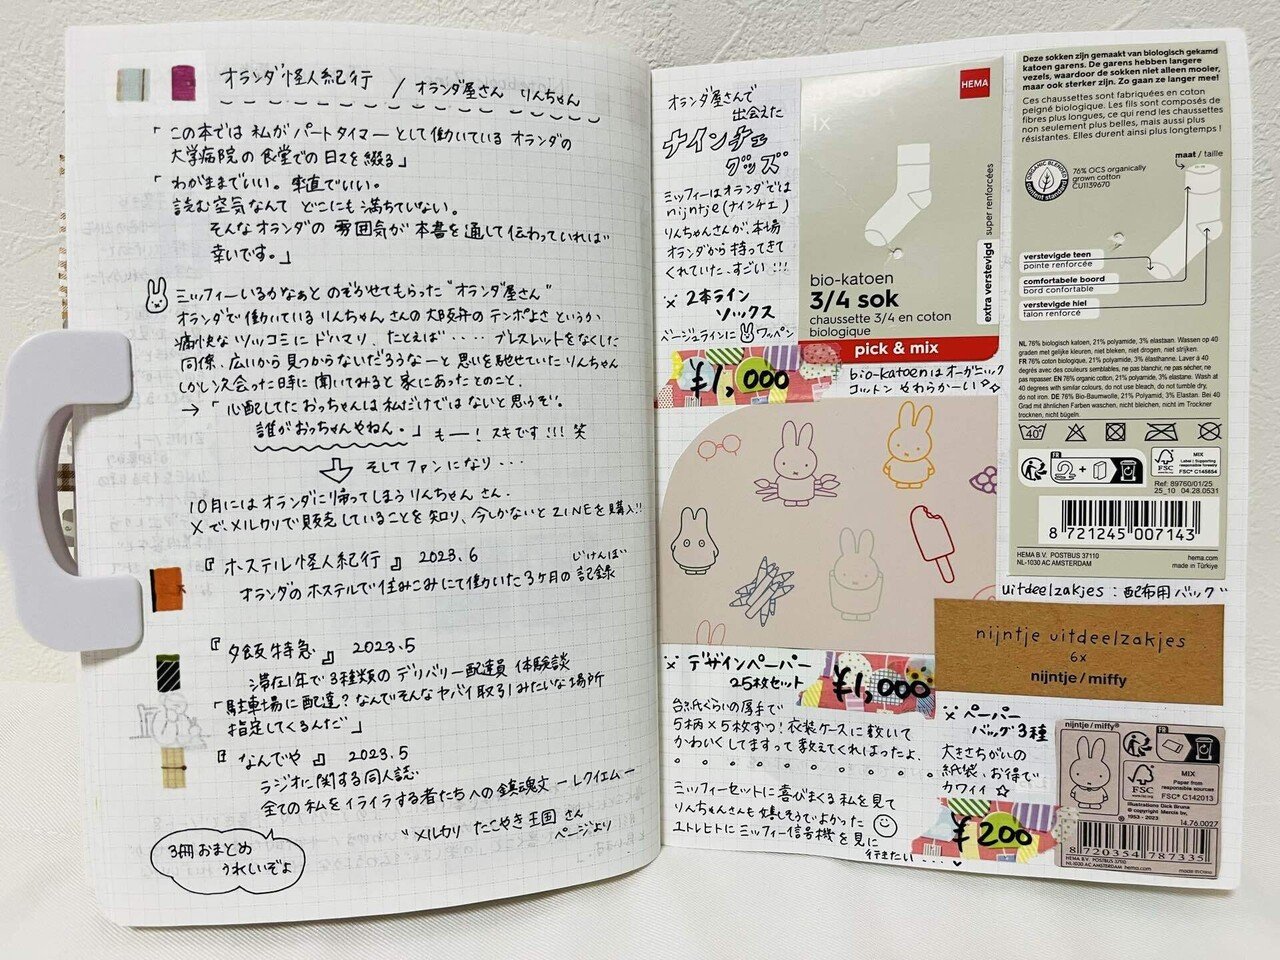 オランダ怪人紀行 / オランダ屋さん りんちゃん
「この本では私がパートタイマーとして働いているオランダの
大学病院の食堂での日々を綴る」
「わがままでいい。率直でいい。
読む空気なんてどこにも満ちていない。
そんなオランダの雰囲気が本書を通して伝わっていれば
幸いです。」
ミッフィーいるかなぁとのぞかせてもらった"オランダ屋さん"
オランダで働いているりんちゃんさんの大阪弁のテンポよさというか
痛快なツッコミにドハマリ、たとえば‥‥ブレスレットをなくした
同僚、広いから見つからないだろうなーと思いを馳せていたりんちゃん
しかしいざ会った時に聞いてみると家にあったとのこと。
→「心配してたおっちゃんは私だけではないと思うぞ。
誰がおっちゃんやねん。」も―！スキです!!!笑
そしてファンになり・・・
10月にはオランダに帰ってしまうりんちゃんさん.
Xで、メルカリで販売していることを知り、今しかないとZINEを購入!!
『ホステル怪人紀行』 2023.6
オランダのホステルで住みこみにて働いた3ヶ月の記録
じけんぼ
『夕飯特急』 2023.5
滞在1年で3種類のデリバリー配達員体験談
「駐車場に配達？なんでそんなヤバイ取引みたいな場所
指定してくるんだ」
『なんでや』 2023.5
ラジオに関する同人誌
全ての私をイライラする者たちへの鎮魂文 ーレクイエムー
"メルカリ たこやき王国さん
ページより
3冊おまとめ
うれしいぞよ
オランダ屋さんで
出会えた
ナインチェ
グッズ
ミッフィーはオランダでは
nijntje(ナインチェ)
りんちゃんさんが、本場
オランダから持ってきて
くれていた、すごい!!!
※2本ライン
ソックス
ベージュラインにワッペン
¥1,000
bio-katoenはオーガニック
コットン やわらかーい☆
HEMA
1x
bio-katoen
3/4 sok
chaussette 3/4 en coton
biologique
pick & mix
extra verstevigd super renforcées
Deze sokken zijn gemaakt van biologisch gekamd
katoen garens. De garens hebben langere
vezels, waardoor de sokken niet alleen mooier,
maar ook sterker zijn. Zo gaan ze langer mee!
Ces chaussettes sont fabriquées en coton
peigné biologique. Les fils sont composés de
fibres plus longues, ce qui rend les chaussettes
non seulement plus belles, mais aussi plus
résistantes. Elles durent ainsi plus longtemps !
maat / taille
ORGANIC BLENDED
content standard
76% OCS organically
grown cotton
CU1139670
verstevigde teen
pointe renforcée
comfortabele boord
bord confortable
verstevigde hiel
talon renforcé
NL 76% biologisch katoen, 21% polyamide, 3% elastaan. Wassen op 40
graden met gelijke kleuren, niet bleken, niet drogen, niet strijken.
FR 76% coton biologique, 21% polyamide, 3% élasthanne. Laver à 40
degrés avec des couleurs semblables, ne pas blanchir, ne pas sécher, ne
pas repasser. EN 76% organic cotton, 21% polyamide, 3% elastane. Wash at
40 degrees with similar colours, do not use bleach, do not tumble dry,
do not iron. DE 76% Bio-Baumwolle, 21% Polyamid, 3% Elastan. Bei 40
Grad mit ähnlichen Farben waschen, nicht bleichen, nicht im Trockner
trocknen, nicht bügeln.
40°
FR
FSC
MIX
FSC® C145854
Ref: 89760/01/25
25_10 04.28.0531
8 721245 007143
HEMA B.V. POSTBUS 37110
NL-1030 AC AMSTERDAM
hema.com
made in Türkiye
uitdeelzakjes：配布用バッグ
nijntje uitdeelzakjes
6x
nijntje / miffy
※デザインペーパー
25枚セット
¥1,000
台紙ぐらいの厚手で
5柄×5枚ずつ！衣装ケースに敷いて
かわいくしてますって教えてくれはったよ.
ミッフィーセットに喜びまくる私を見て
りんちゃんさんも嬉しそうでよかった
ユトレヒトにミッフィー信号機を見に
行きたい・・・
※ペーパー
バッグ3種
大きさちがいの
紙袋、お得で
カワイイ☆
¥200
nijntje / miffy®
FR
FSC
MIX
Paper from
responsible sources
FSC® C142013
illustrations Dick Bruna
© copyright Mercis bv,
1953 - 2023
14.76.0027
8 720354 787335
HEMA B.V. POSTBUS 37110
NL-1030 AC AMSTERDAM hema.com